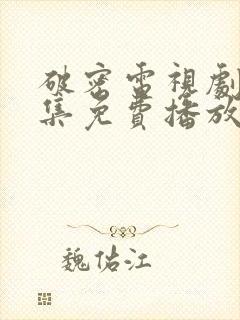 破密電視劇
集免費播放
魏佑江